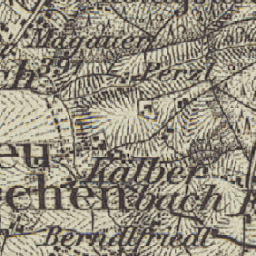 Magauen
h³⁹
z. Perzl
eu
Kalber
chen
bach
Berndlfriedl